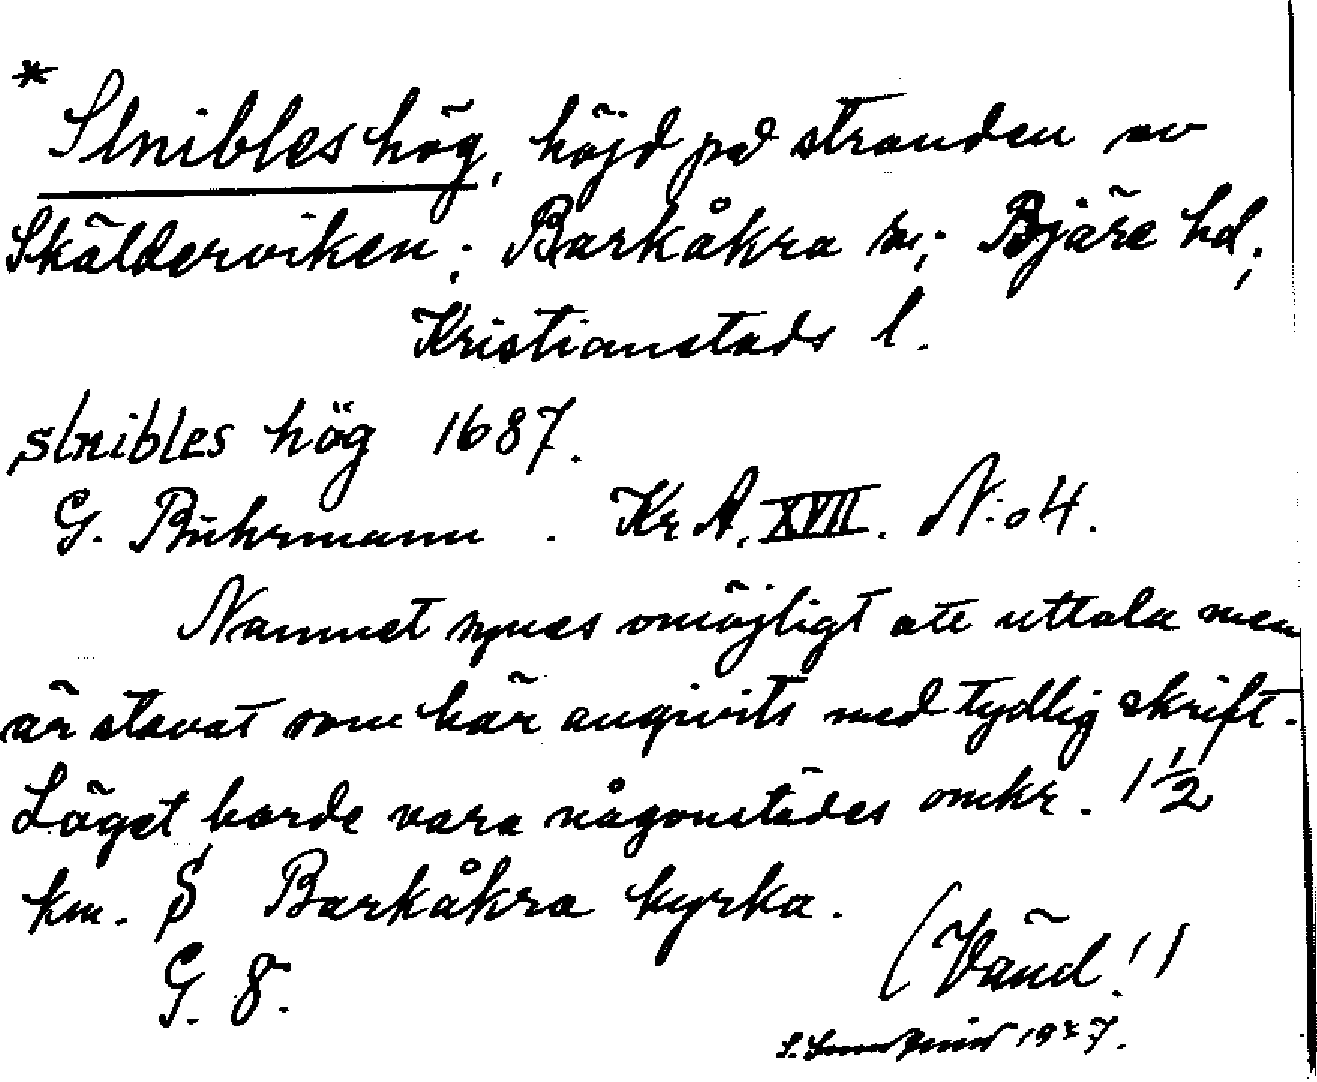 * Slnibles hög, höjd på stranden av
Skälderviken; Barkåkra sn; Bjäre hd;
Kristianstads l.
slnibles hög 1687.
G. Buhrmann. Kr A. XVII. N:o 4.
Namnet synes omöjligt att uttala men
är stavat som här angivits med tydlig skrift.
Läget borde vara någonstädes omkr. 1 1/2
km. S Barkåkra kyrka.
G. 8.
(Vänd!)
1927.